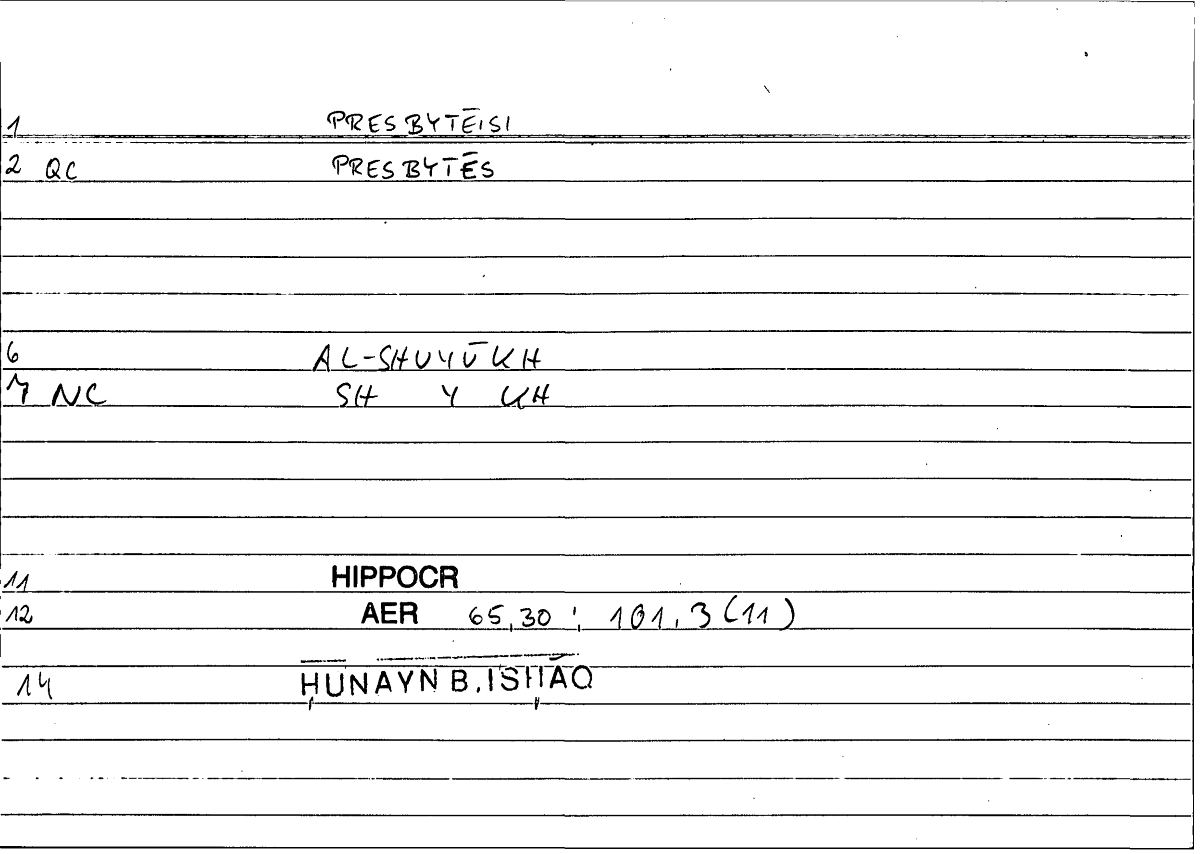 1 PRESBYTĒISI
2 QC PRESBYTĒS
6 AL-SHUYŪKH
7 NC SH Y KH
11 HIPPOCR
12 AER 65,30 ; 101,3 (11)
14 ḤUNAYN B. ISḤĀQ